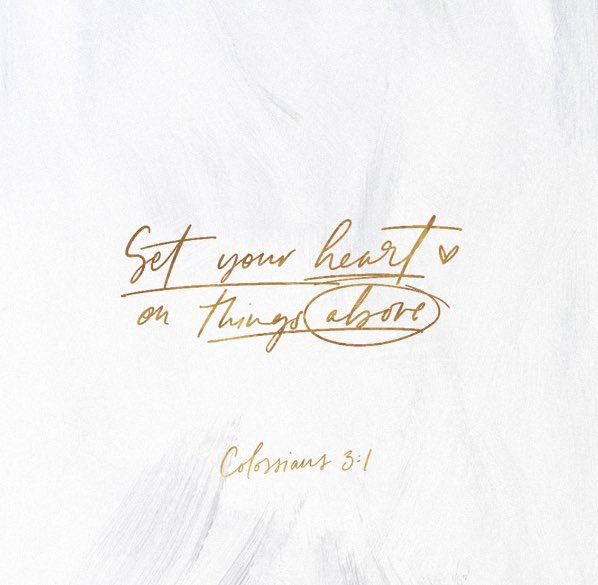 Set your heart
on things above
Colossians 3:1